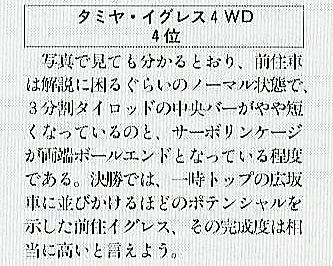 タミヤ・イグレス4WD
4位
写真で見ても分かるとおり、前住車
は解説に困るぐらいのノーマル状態で、
3分割タイロッドの中央バーがやや短
くなっているのと、サーボリンケージ
が両端ボールエンドとなっている程度
である。決勝では、一時トップの広坂
車に並びかけるほどのポテンシャルを
示した前住イグレス、その完成度は相
当に高いと言えよう。